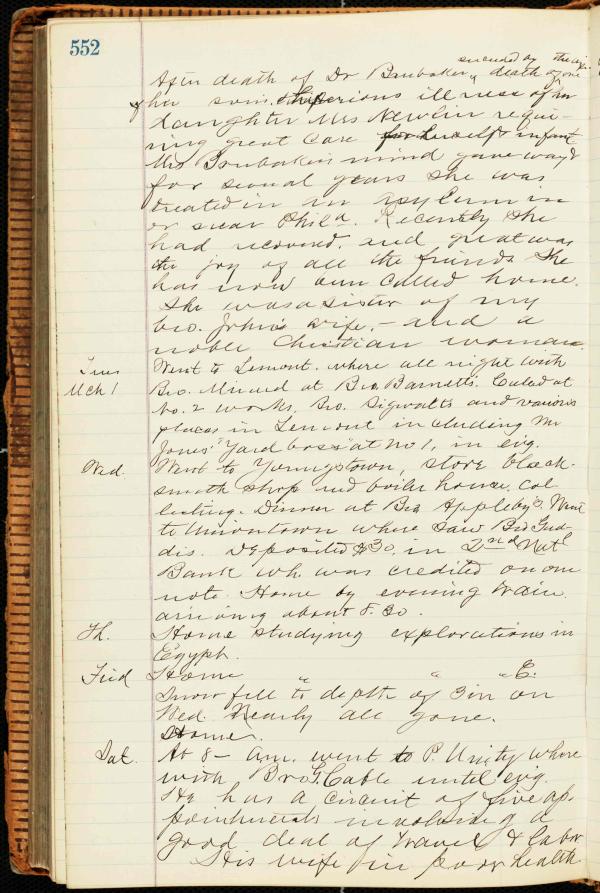 552
succeeded by the
After death of Dr Brubaker, death of one
of her sons. The serious illness of her
daughter Mrs Newlin requi-
ring great care for herself & infant
Mrs Brubaker's mind gave way &
for several years she was
treated in an asylum in
or near Phila. Recently she
had recovered, and great was
the joy of all the friends She
has now been called home.
She was a sister of my
bro. John's wife, - and a
noble Christian woman.
Tues Went to Lemont. where all night with
Mch 1 Bro. Minerd at Bro Barnetts. Called at
No. 2 works, Bro. Sigwalts and various
places in Lemont including Mr
Jones "Yard boss" at No 1, in evg.
Wed. Went to Youngstown, store black-
smith shop and boiler house. col
lecting. Dinner at Bro Appleby's. Went
to Uniontown where saw Bro Gad-
dis. Deposited $30. in 2nd Natl
Bank wh. was credited on one
note. Home by evening train
arriving about 8.30.
Th. Home studying explorations in
Egypt.
Frid Home " " "E.
Snow fell to depth of 3 in on
Wed. Nearly all gone.
Home.
Sat. At 8 - am. went to P. Unity where
with Bro G. Cable until evg.
He has a circuit of five ap-
pointments involving a
good deal of travel & labor
His wife in poor health